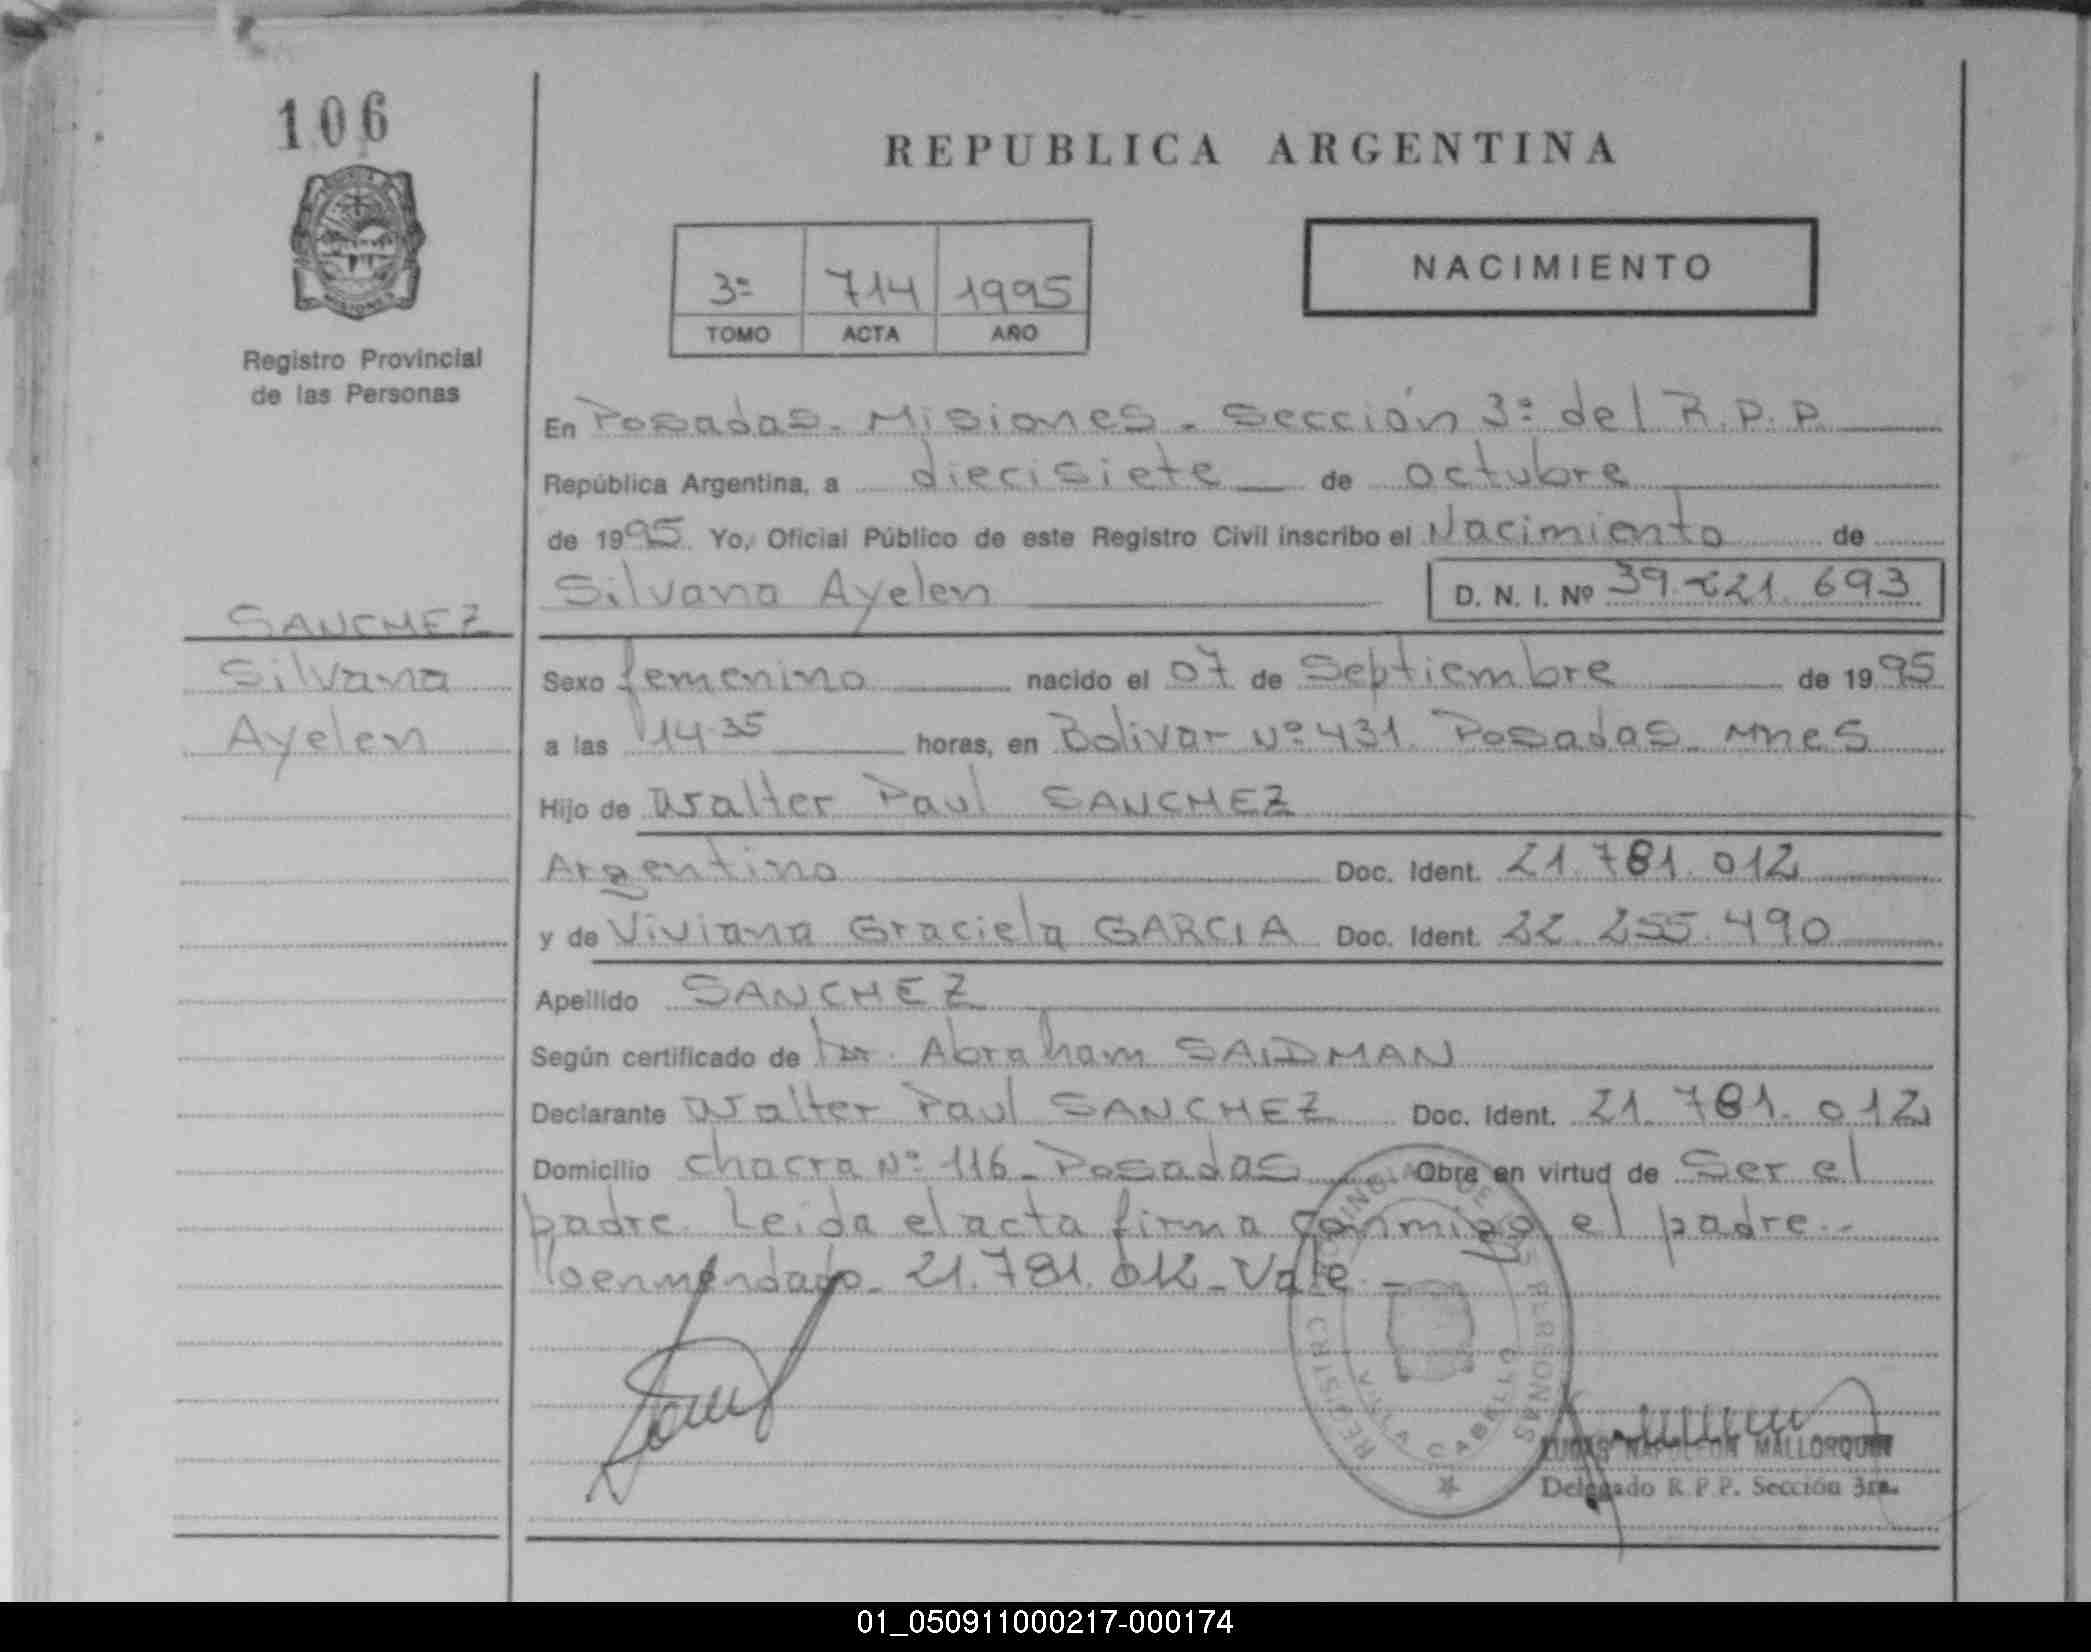 106
REPUBLICA ARGENTINA
3º 714 1995
TOMO ACTA AÑO
NACIMIENTO
Registro Provincial
de las Personas
En Posadas - Misiones - Sección 3º del R.P.P.
República Argentina, a diecisiete de octubre
de 1995 Yo, Oficial Público de este Registro Civil inscribo el Nacimiento de
Silvana Ayelen D. N. I. Nº 39.221.693
SANCHEZ
Silvana
Ayelen
Sexo femenino nacido el 07 de Septiembre de 1995
a las 14.35 horas, en Bolivar Nº 431. Posadas - Mnes
Hijo de Walter Paul SANCHEZ
Argentino Doc. Ident. 21.781.012
y de Viviana Graciela GARCIA Doc. Ident. 22.255.490
Apellido SANCHEZ
Según certificado de Dr. Abraham SAIDMAN
Declarante Walter Paul SANCHEZ Doc. Ident. 21.781.012
Domicilio Chacra Nº 116 - Posadas Obra en virtud de Ser el
padre. Leida el acta firma conmigo el padre.-
Lo enmendado - 21.781.012 - Vale -
REGISTRO PROVINCIAL DE LAS PERSONAS
VILLA CABELLO
LUCAS NAPOLEON MALLORQUIN
Delegado R.P.P. Sección 3ra.
01_050911000217-000174